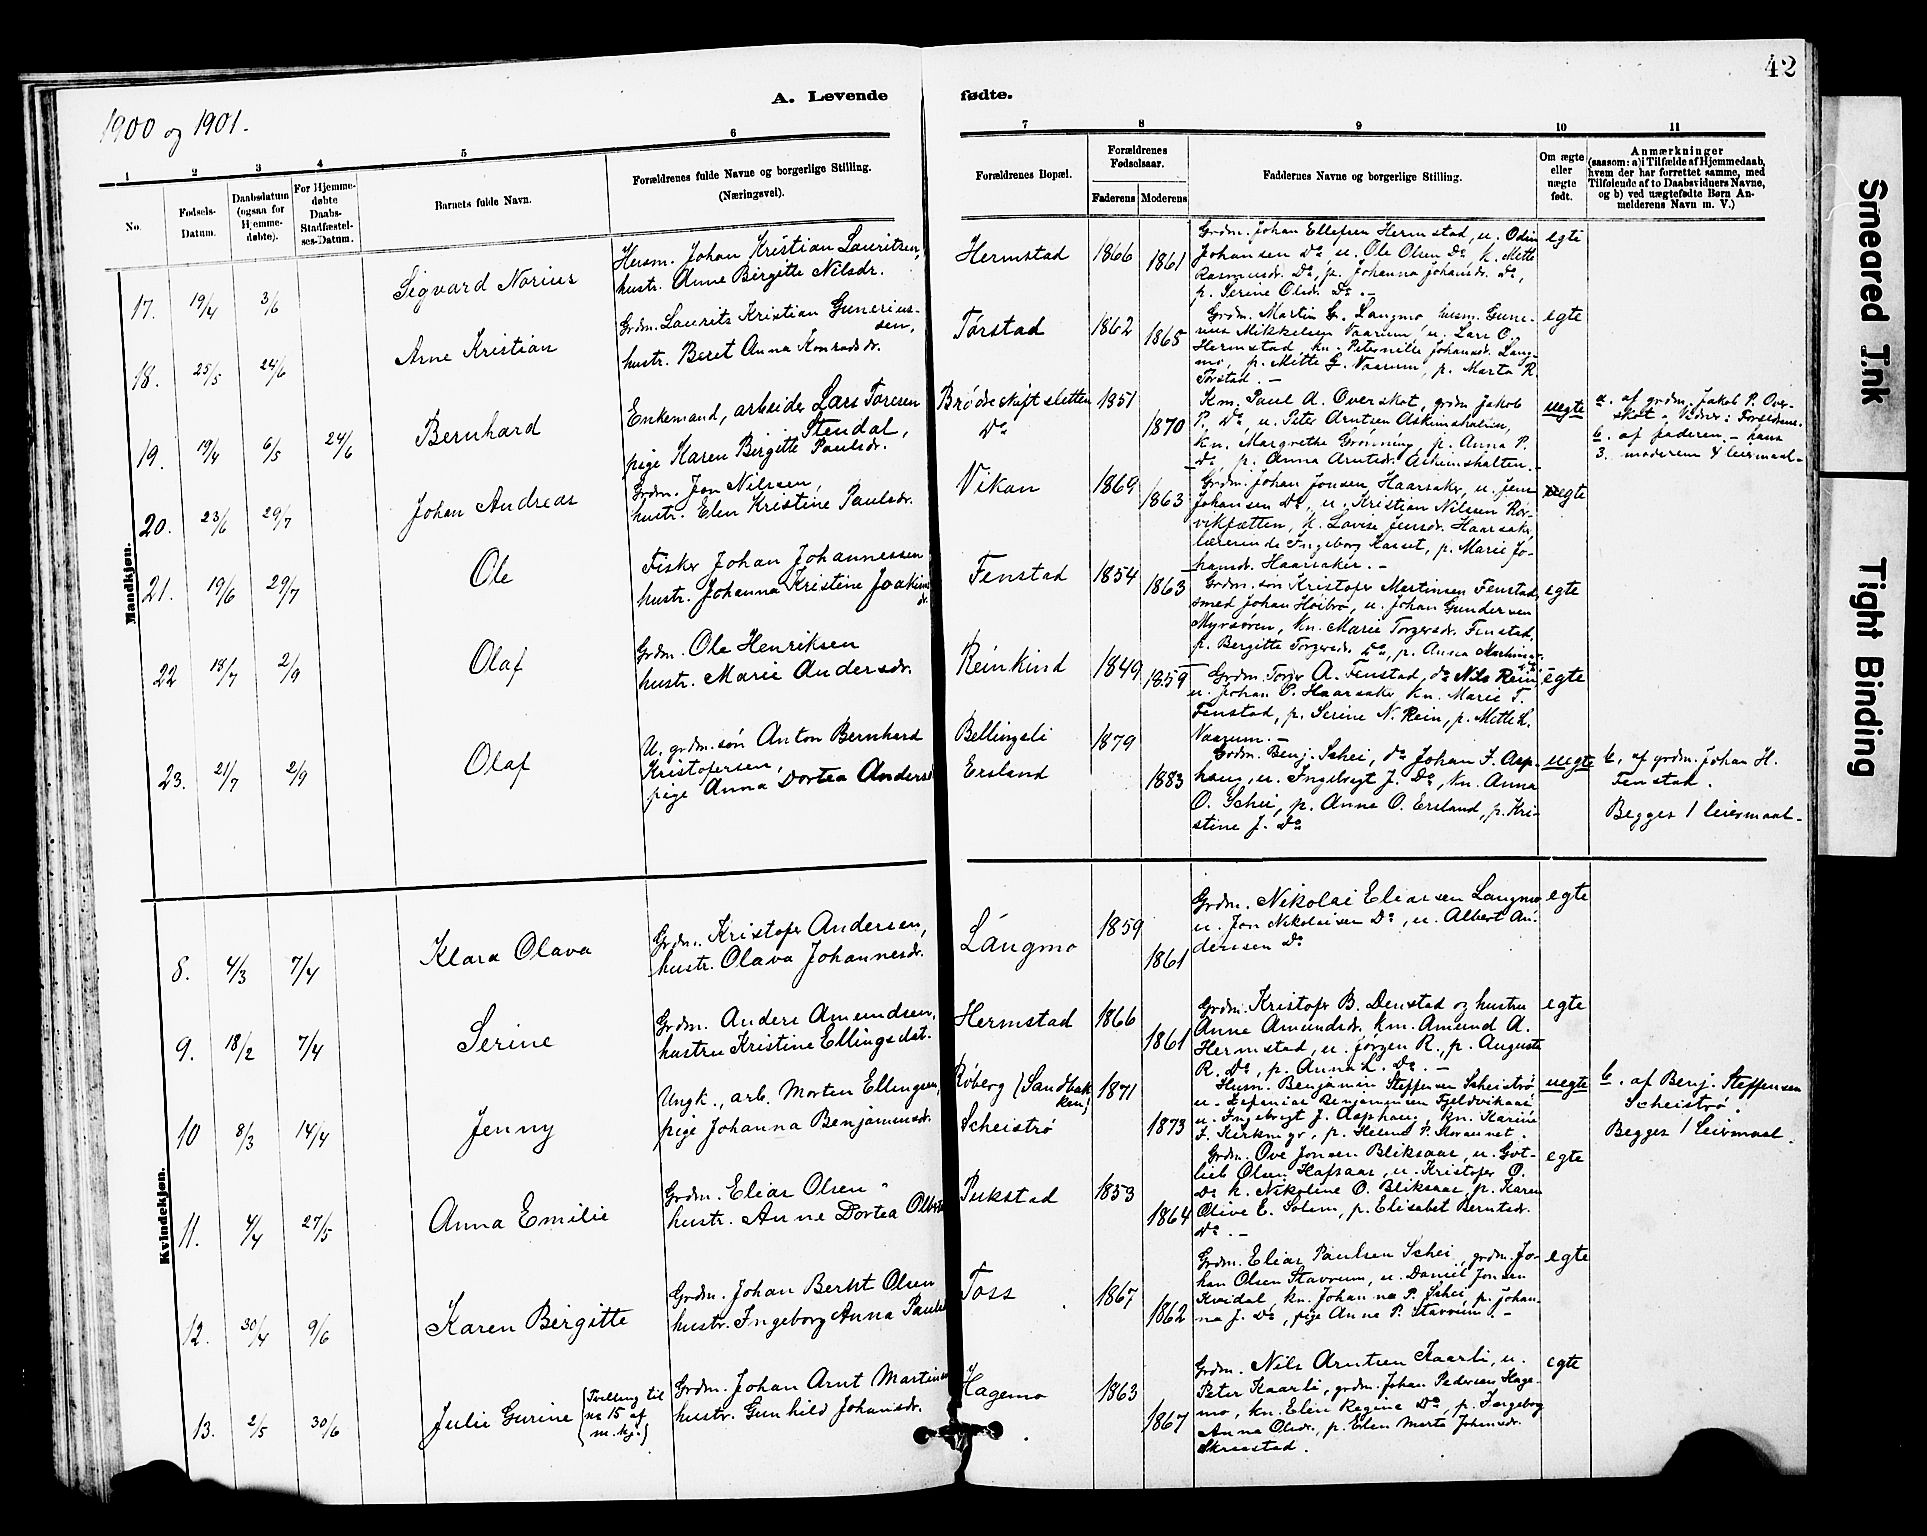 42
A. Levende fødte.
1900 og 1901.
1 2 3 4 5 6 7 8 9 10 11
No.
Fødsels-Datum.
Daabsdatum (ogsaa for Hjemme-døbte).
For Hjemme-døbte Daabs-Stadfæstel-ses-Datum.
Barnets fulde Navn.
Forældrenes fulde Navne og borgerlige Stilling.
(Næringsvei).
Forældrenes Bopæl.
Forældrenes Fødselsaar.
Faderens Moderens
Faddernes Navne og borgerlige Stilling.
Om ægte eller uægte født.
Anmærkninger
(saasom: a) i Tilfælde af Hjemmedaab,
hvem der har forrettet samme, med
Tilføiende af to Daabsvidners Navne,
og b) ved uægtefødte Børn An-
melderens Navn m. V.)
Mandkjøn.
17. 19/4 3/6 Sigvard Norius
Husm. Johan Kristian Lauritsen,
hustr. Anne Birgitte Nilsdr.
Hermstad 1866 1861
Grdm. Johan Ellefsen Hermstad, u. Odin
Johansen Do, u. Ole Olsen Do, k. Mette
Rasmusdr. Do, p. Johanna Johansdr. Do,
p. Serine Olsdr. Do. -
egte
18. 25/5 24/6 Arne Kristian
Grdm. Laurits Kristian Gunerius-
sen,
hustr. Beret Anna Konradsdr.
Torstad 1862 1865
Grdm. Martin G. Langmo husm. Gune-
rius Mikkelsen Vaarum, u. Lars O.
Hermstad, kn. Peternille Johansdr. Lang-
mo, p. Mette G. Vaarum, p. Marta R.
Torstad. -
egte
19. 19/4 6/5 24/6 Bernhard
Enkemand, arbeider Lars Toresen
Stendal,
pige Karen Birgitte Paulsdr.
Brødeskiftsletten 1851
Do 1870
Km. Paul A. Overskot, grdm. Jakob
P. Do, u. Peter Arntsen
kn. Margrethe Grønning, p. Anna P.
Do, p. Anna Arntsdr.
uegte
a. af grdm. Jakob P. Over-
skot.
b. af faderen. - hans
3. moderens 4 leiermaal -
20. 23/6 29/7 Johan Andreas
Grdm. Jon Nilssen,
hustr. Elen Kristine Paulsdr.
Vikan 1869 1863
Grdm. Johan Jonsen Haarsaker, u. Jens
Johansen Do, u. Kristian Nilssen Ror-
vikfætten, k. Lovise Jensdr. Haarsaker,
lærerinde Ingeborg Kasset, p. Marie Jo-
hansdr. Haarsaker. -
egte
21. 19/6 29/7 Ole
Fisker Johan Johannessen
hustr. Johanna Kristine Joakims
dr.
Fenstad 1854 1863
Grdm. søn Kristofer Martinsen Fenstad,
smed Johan Hoibro, u. Johan Gundersen
Myrsøren, kn. Marie Torgersdr. Fenstad,
p. Bergitte Torgersdr. Do, p. Anna
egte
22 13/7 2/9 Olaf
Grdm. Ole Henriksen
hustr. Marie Andersdr.
Reinkind 1849 1859
Grdm. Torger A. Fenstad, do Nils Rein,
u. Johan P. Haarsaker kn. Marie T.
Fenstad, p. Serine N. Rein, p. Mette L.
Vaarum. -
egte
23. 21/7 2/9 Olaf
U. grdm. søn Anton Bernhard
Kristofersen,
pige Anna Dortea Anders
Bellingsli 1879
Ersland 1883
Grdm. Benj. Schei, do Johan J. Asp-
haug, u. Ingebrigt J. Do, kn. Anna
O. Schei, p. Anne O. Ersland, p. Kri-
stine J. Do
uegte
b. af grdm. Johan H.
Fenstad.
Begges 1 leiermaal -
Kvindekjøn.
8. 4/3 7/4 Klara Olava
Grdm. Kristofer Andersen,
hustr. Olava Johannesdr.
Langmo 1859 1861
Grdm. Nikolai Eliassen Langmo
u. Jon Nikolaisen Do, u. Albert An-
dersen Do
egte
9. 18/2 7/4 Serine
Grdm. Anders Amundsen,
hustru Kristine Ellingsdat.
Hermstad 1866 1861
Grdm. Kristofer B. Denstad og hustru
Anne Amundsdr. km. Amund A.
Hermstad, u. Jørgen R., p. Auguste
R. Do, p. Anna L. Do. -
egte
10 8/3 14/4 Jenny
Ungk., arb. Morten Ellingsen,
pige Johanna Benjaminsdr.
Røberg (Sandbak-
ken) 1871
Scheistrø 1873
Husm. Benjamin Steffensen Scheistrø
u. Zefanias Benjaminsen Fjeldvikaas
u. Ingebrigt J. Asphaug, kn. Karine
J. Kirkmyr, p. Helene P. Korsunnet.
uegte
b. af Benj. Steffensen
Scheistrø.
Begges 1 leiermaal.
11. 4/4 27/5 Anna Emilie
Grdm. Elias Olsen
hustr. Anne Dortea
Pukstad 1853 1864
Grdm. Ove Jonsen Bliksaas, u. Got-
lieb Olsen Hafsaas, u. Kristofer O.
Do k. Nikoline O. Bliksaas, p. Karen
Olive E. Solem, p. Elisabet Berntsdr.
Do. -
egte
12. 30/4 9/6 Karen Birgitte
Grdm. Johan Berht Olsen
hustr. Ingeborg Anna Pauls
Foss 1867 1862
Grdm. Elias Paulsen Schei, grdm. Jo-
han Olsen Stavrum, u. Daniel Jonsen
Kvidal, kn. Johanna P. Schei p. Johan-
na J. Do, pige Anna P. Stavrum. -
egte
13. 2/5 30/6 Julie Gurine (Tvilling til
no 15 af
m. kj.)
Grdm. Johan Arnt Martinsen
hustr. Gunhild Johansdr.
Hagemo 1863 1867
Grdm. Nils Arntsen Kaarli, u.
Peter Kaarli, grdm. Johan Pedersen Hage-
mo, kn. Elen Regine Do, p. Ingeborg
Anna Olsdr., p. Elen Marta Johansdr.
Skraastad.
egte
Smeared Ink
Tight Binding